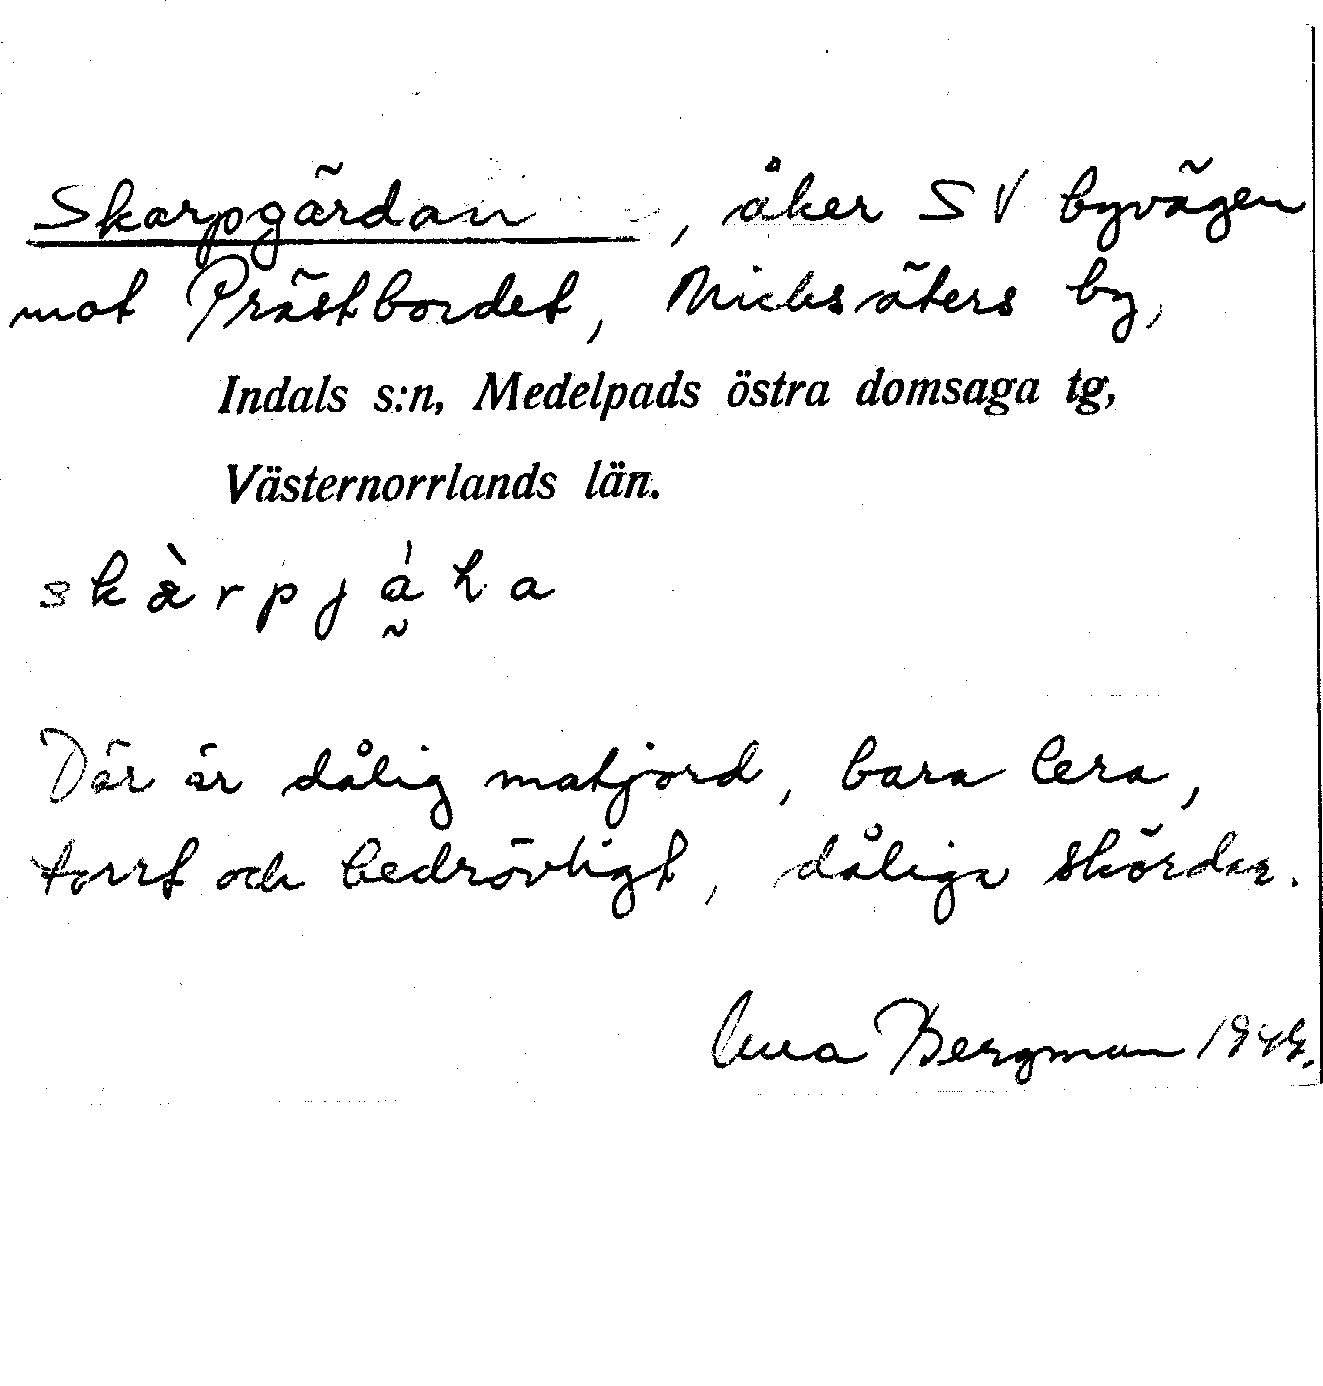 Skarpgärdan, åker SV byvägen
mot Prästbordet, Nicksäters by,
Indals s:n, Medelpads östra domsaga tg,
Västernorrlands län.
skàrpjá̰ɫa
Där är dålig matjord, bara lera,
torrt och bedrövligt, dåliga skördar.
Anna Bergman 1944.